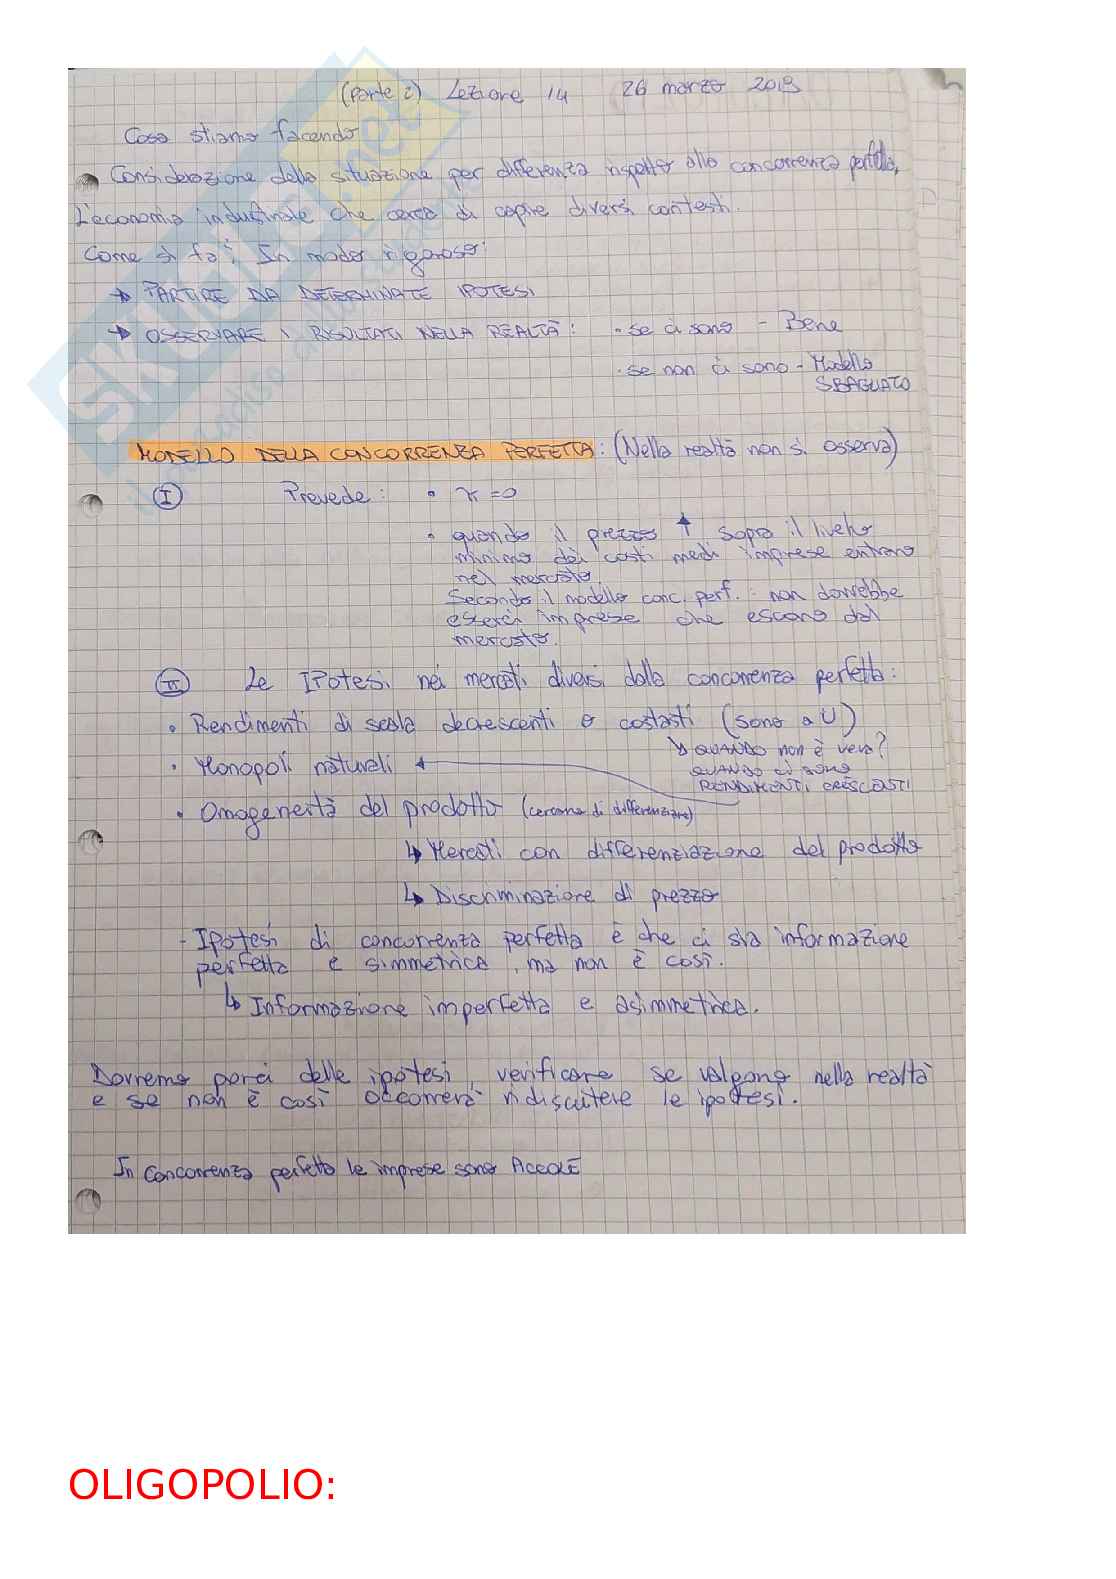 (parte 2) Lezione 14 26 marzo 2019
Cosa stiamo facendo
Considerazione della situazione per differenza rispetto alla concorrenza perfetta,
L'economia industriale che cerca di capire diversi contesti.
Come si fa? In modo rigoroso:
→ PARTIRE DA DETERMINATE IPOTESI
→ OSSERVARE I RISULTATI NELLA REALTÀ: • se ci sono - Bene
• se non ci sono - Modello
SBAGLIATO
MODELLO DELLA CONCORRENZA PERFETTA: (Nella realtà non si osserva)
I Prevede: • π = 0
• quando il prezzo ↑ sopra il livello
minimo dei costi medi imprese entrano
nel mercato.
Secondo il modello conc. perf.: non dovrebbe
esserci imprese che escono dal
mercato.
II Le IPotesi nei mercati diversi dalla concorrenza perfetta:
• Rendimenti di scala decrescenti o costanti (sono a U)
↳ QUANDO non è vero?
QUANDO ci sono
RENDIMENTI CRESCENTI
• Monopoli naturali ←
• Omogeneità del prodotto (cercano di differenziare)
↳ Mercati con differenziazione del prodotto
↳ Discriminazione di prezzo
- Ipotesi di concorrenza perfetta è che ci sia informazione
perfetta e simmetrica, ma non è così.
↳ Informazione imperfetta e asimmetrica.
Dovremo porci delle ipotesi, verificare se valgono nella realtà
e se non è così occorrerà ridiscutere le ipotesi.
In concorrenza perfetta le imprese sono
OLIGOPOLIO: